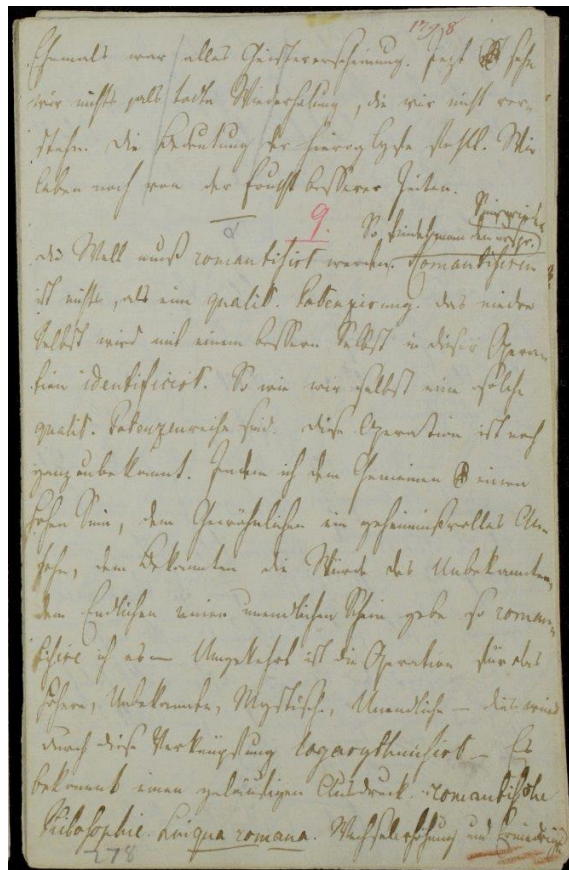 1798
Ehemals war alles Geistererscheinung. Jezt sehn
wir nichts, als todte Wiederholung, die wir nicht ver-
stehn. Die Bedeutung der Hieroglyfe fehlt. Wir
leben noch von der Frucht besserer Zeiten.
9.
So findet man den urspr.
Die Welt muß romantisirt werden. Romantisiren
ist nichts, als eine qualit. Potenzirung. Das niedre
Selbst wird mit einem bessern Selbst in dieser Opera-
tion identificirt. So wie wir selbst eine solche
qualit. Potenzenreihe sind. Diese Operation ist noch
ganz unbekannt. Indem ich dem Gemeinen einen
hohen Sinn, dem Gewöhnlichen ein geheimnißvolles An-
sehn, dem Bekannten die Würde des Unbekannten,
dem Endlichen einen unendlichen Schein gebe so roman-
tisire ich es — Umgekehrt ist die Operation für das
Höhere, Unbekannte, Mystische, Unendliche — dies wird
durch diese Verknüpfung logarythmisirt — Es
bekommt einen geläufigen Ausdruck. romantische
Philosophie. Lingua romana. Wechselerhöhung und Erniedrigung
278